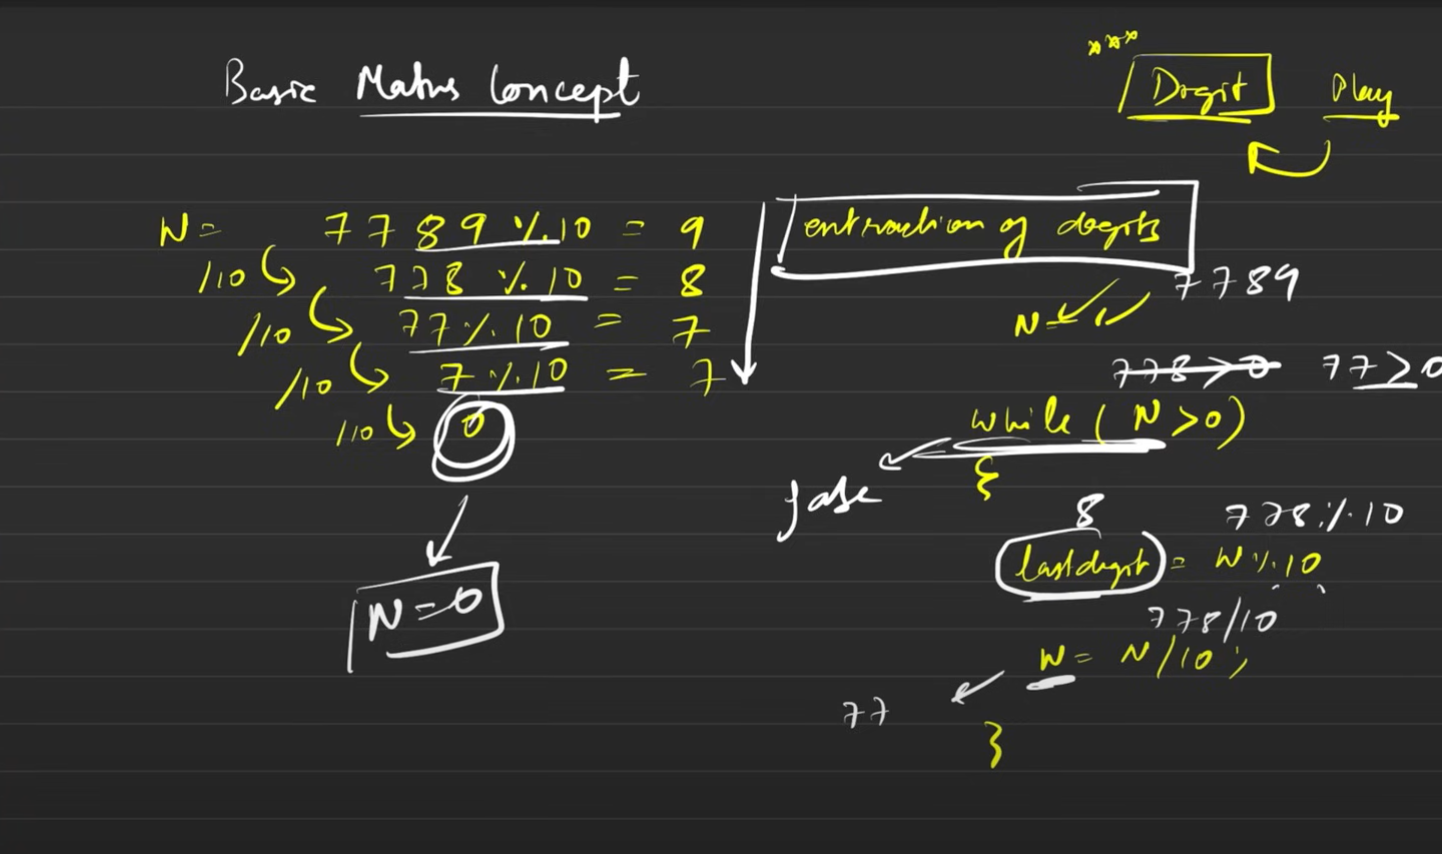 Basic Maths Concept
***
Digit Play
N = 7789 % 10 = 9
/10 778 % 10 = 8
/10 77 % 10 = 7
/10 7 % 10 = 7
/10 0
N = 0
extraction of digits
7789
N =
778 > 0 77 > 0
while ( N > 0 )
{
false
8 778 % 10
lastdigit = N % 10
778/10
N = N/10 ;
77
}